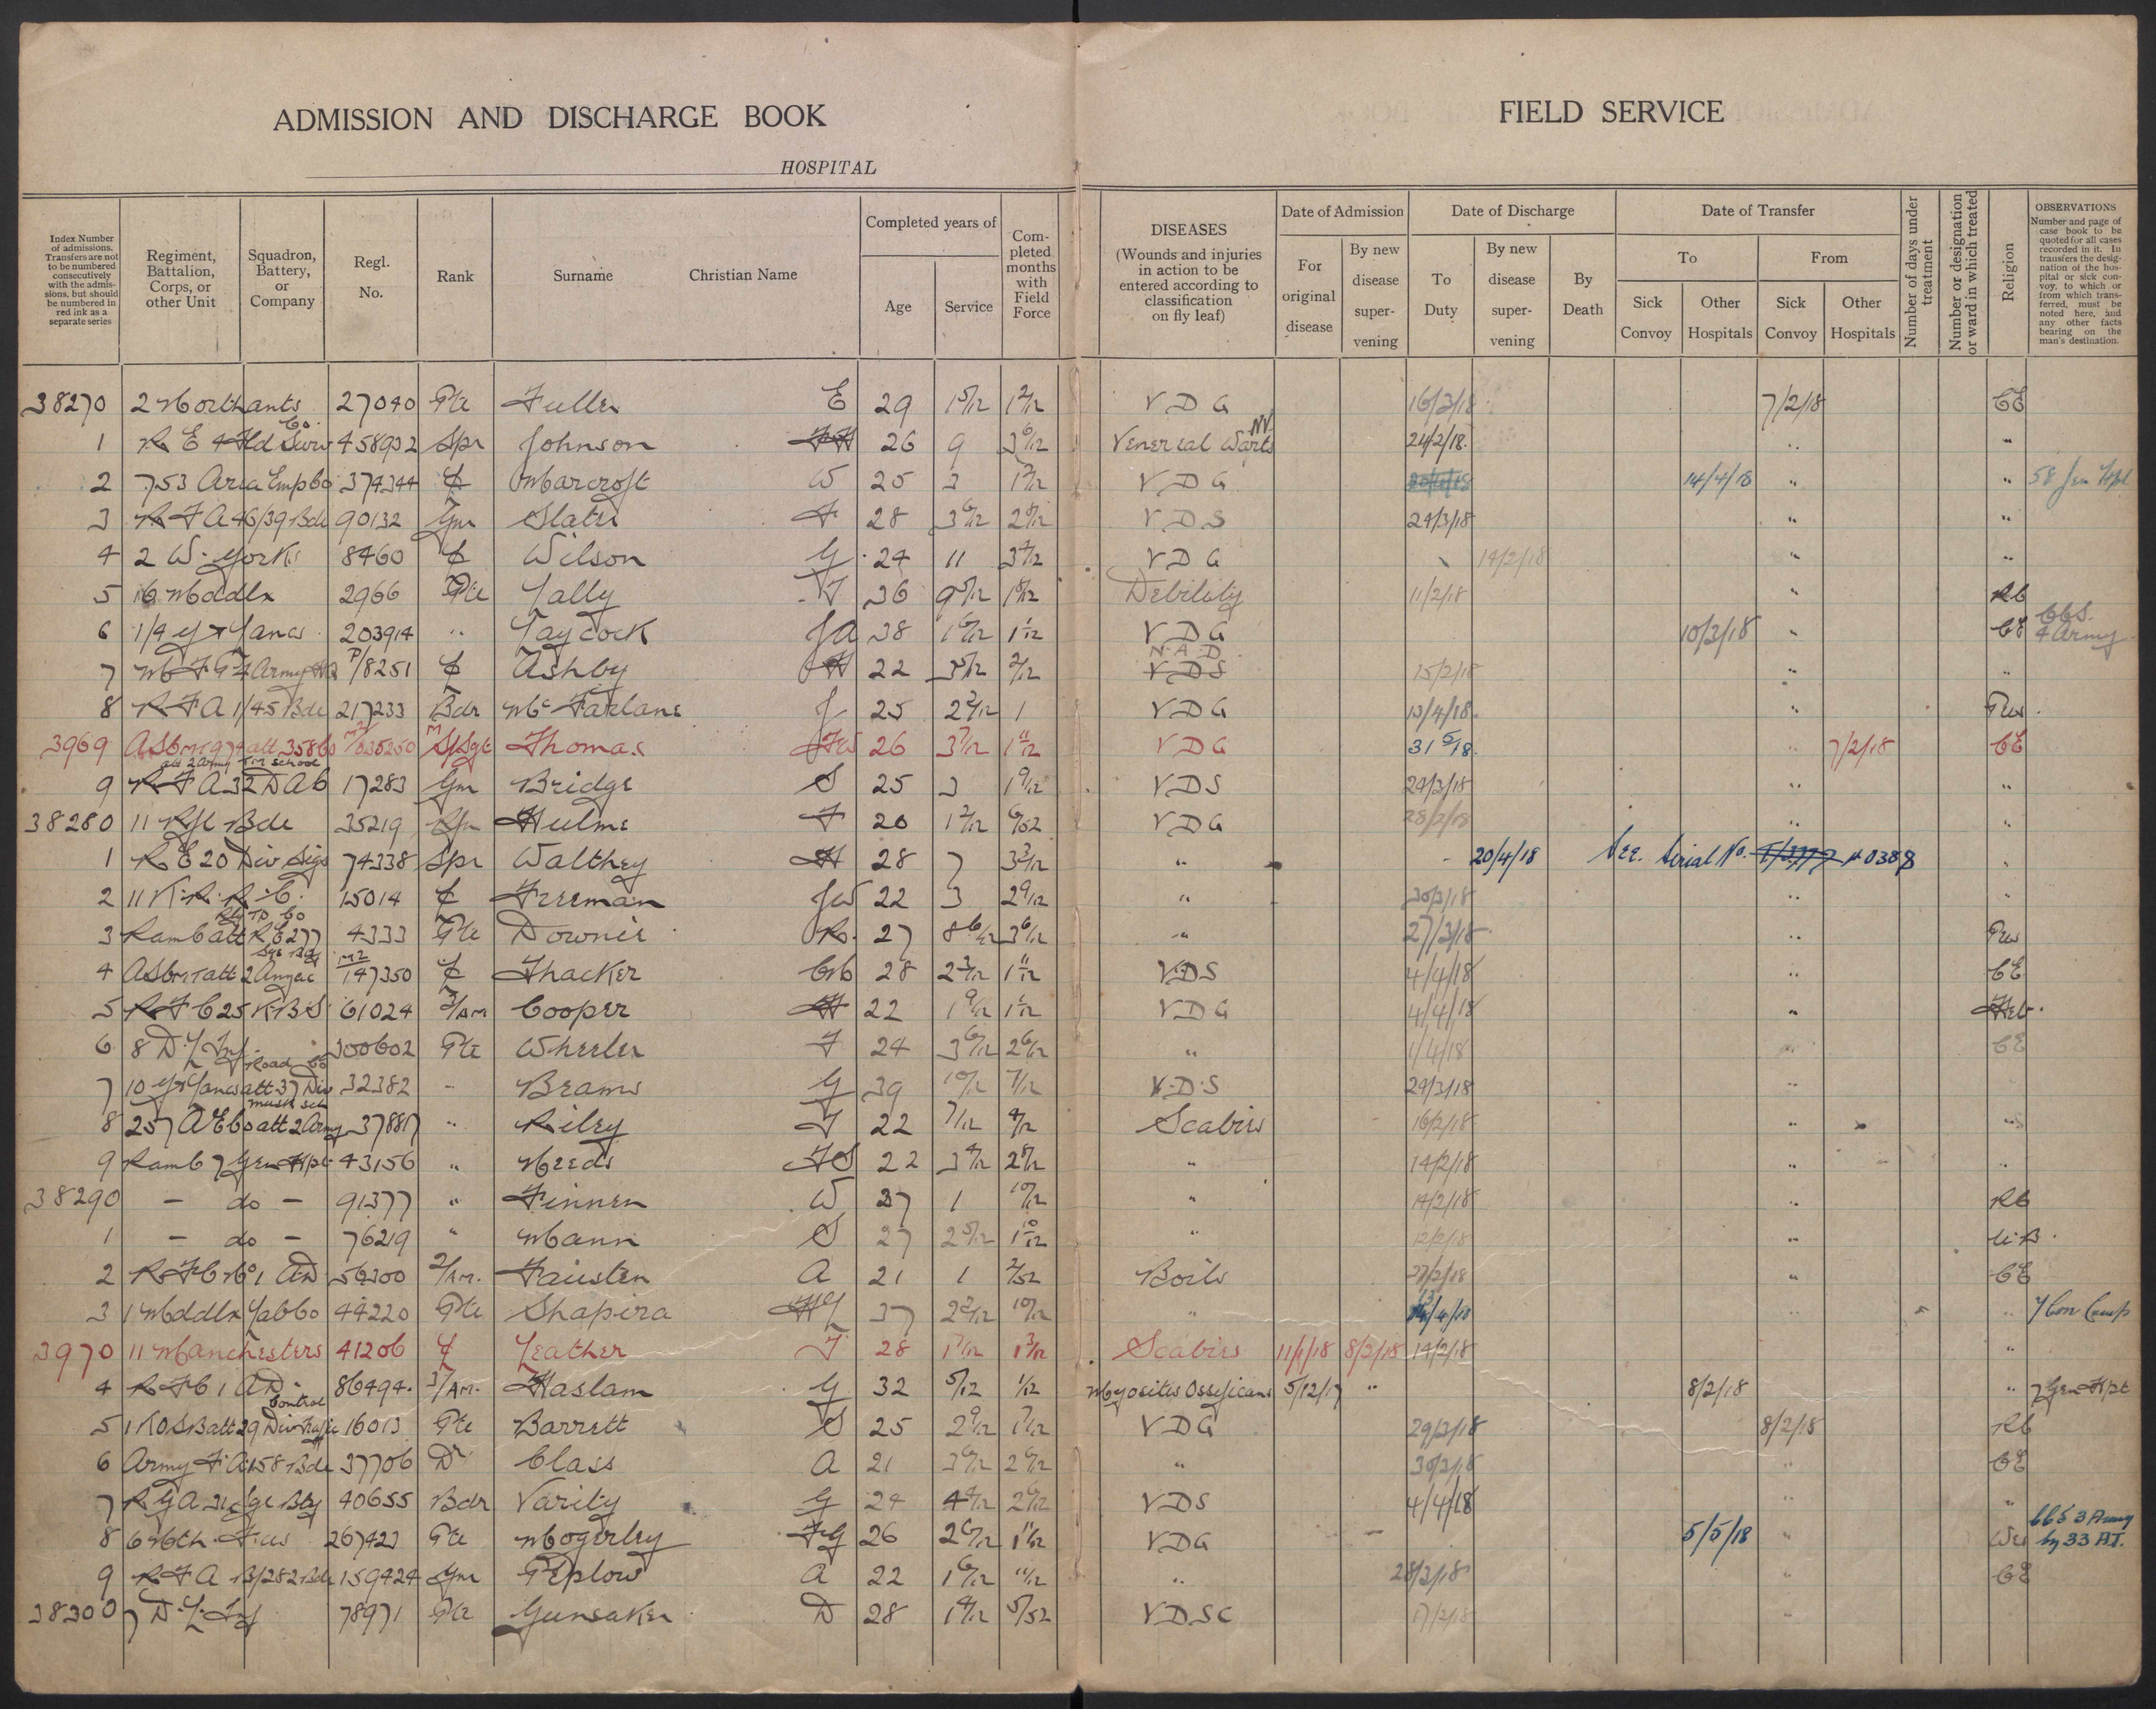 ADMISSION AND DISCHARGE BOOK
FIELD SERVICE
HOSPITAL
Index Number of admissions. Transfers are not to be numbered consecutively with the admissions, but should be numbered in red ink as a separate series
Regiment, Battalion, Corps, or other Unit
Squadron, Battery, or Company
Regl. No.
Rank
Surname
Christian Name
Completed years of
Age
Service
Completed months with Field Force
DISEASES
(Wounds and injuries in action to be entered according to classification on fly leaf)
Date of Admission
For original disease
By new disease supervening
Date of Discharge
To Duty
By new disease supervening
By Death
Date of Transfer
To
Sick Convoy
Other Hospitals
From
Sick Convoy
Other Hospitals
Number of days under treatment
Number or designation or ward in which treated
Religion
OBSERVATIONS
Number and page of case book to be quoted for all cases recorded in it. In transfers the designation of the hospital or sick convoy, to which or from which transferred, must be noted here, and any other facts bearing on the man's destination.
38270 2 Northants 27040 Pte Fuller E 29 1 5/12 1 2/12 V D G 16/3/18 7/2/18 CE
1 R E 4 Fld Surv Co. 458932 Spr Johnson FH 26 9 3 6/12 Venereal Warts NV 24/2/18 "
2 753 Area Emp Co 374344 " Marcroft W 25 3 1 7/12 V D G 14/4/18 " " 58 Gen Hpl
3 R F A 46/39 Bde 90132 Gnr Slater F 28 3 6/12 2 6/12 V D S 24/3/18 " "
4 2 W. Yorks 8460 Wilson G 24 11 3 4/12 V D G 14/2/18 " "
5 16 Middlx 2966 Pte Lally J 36 9 5/12 1 8/12 Debility 11/2/18 " RC
6 1/4 Y & Lancs 203914 " Laycock J A 38 1 6/12 1 1/12 V D G 10/3/18 " CE CCS. 4 Army
7 M F P 4 Army HQ P/8251 Ashby H 22 5/12 2/12 N.A.D V D S 15/2/18 " "
8 R F A 1/45 Bde 217233 Bdr McFarlane J 25 2 7/12 1 V D G 13/4/18 " Pres
3969 ASC MT 974 att 358 Co M2/035250 M S/Sgt Thomas F W 26 3 7/12 1 11/12 V D G 31/5/18 " 7/2/18 CE
att 2 Army T.M School
9 R F A 32 D A C 17283 Gnr Bridge S 25 3 1 9/12 V D S 24/3/18 " "
38280 11 Rfl Bde 35219 Rfn Hulme F 20 1 2/12 6/52 V D G 28/2/18 " "
1 R E 20 Div Sigs 74338 Spr Walthey H 28 7 3 3/12 " 20/4/18 See Serial No. 40388 "
2 11 K.R.R.C. 15014 Freeman J W 22 3 2 9/12 " 30/3/18 " "
3 Ramc att R E 277 Rly Tp Co 4333 Pte Downie R. 27 8 6/12 3 6/12 " 27/3/18 " Pres
4 ASC MT att 2 Anzac M2 147350 Thacker 28 2 3/12 1 11/12 V D S 4/4/18 " CE
5 R F C 25 K B S 61024 3/AM Cooper H 22 1 9/12 1 1/12 V D G 4/4/18 " Heb.
6 8 D. L. Inf. 300602 Pte Wheeler F 24 3 6/12 2 6/12 " 1/4/18 " CE
7 10 Y & Lancs att 37 Div Road Co 32382 " Beams G 39 10/12 7/12 V.D.S 24/3/18 "
8 257 A E Co att 2 Army Musk Sch 37881 " Riley J 22 7/12 4/12 Scabies 16/2/18 " "
9 Ramc 7 Gen Hpl 43156 " Meeds F S 22 3 4/12 2 8/12 " 14/2/18 " "
38290 - do - 91377 " Finnen W 37 1 10/12 " 14/2/18 " RC
1 - do - 76219 " Mann S 27 2 5/12 1 10/12 " 12/2/18 " U.B.
2 R F C No 1 A D 56300 2/AM. Fausten A 21 1 2/52 Boils 27/2/18 " CE
3 1 Middlx Lab Co 44220 Pte Shapira H Y 37 2 2/12 10/12 " " " 7 Con Camp
3970 11 Manchesters 41206 Leather J 28 1 7/12 1 3/12 Scabies 11/1/18 8/2/18 14/2/18 "
4 R F C 1 A D. 86494. 3/AM. Haslam G 32 5/12 1/12 Myositis Ossificans 5/12/17 " 8/2/18 " 7 Gen Hpt
5 1 KOSB att 29 Div Traffic Control 16013 Pte Barrett S 25 2 9/12 1 7/12 V D G 29/3/18 8/2/18 RC
6 Army F. A. 158 Bde 37706 Dr Class A 21 3 6/12 2 6/12 " 30/3/18 " CE
7 R G A Sge Bty 40655 Bdr Varity G 24 4 4/12 2 6/12 V D S 4/4/18 " "
8 6 Nth. Fus 267423 Pte Mogerley F G 26 2 6/12 1 11/12 V D G 5/5/18 " Wes CCS 3 Army by 33 A.T.
9 R F A B/282 Bde 159424 Gnr Peplow A 22 1 6/12 11/12 " 28/3/18 " CE
38300 7 D. L. Inf 78971 Pte Gunsaker D 28 1 4/12 5/52 V D S C 17/2/18 "